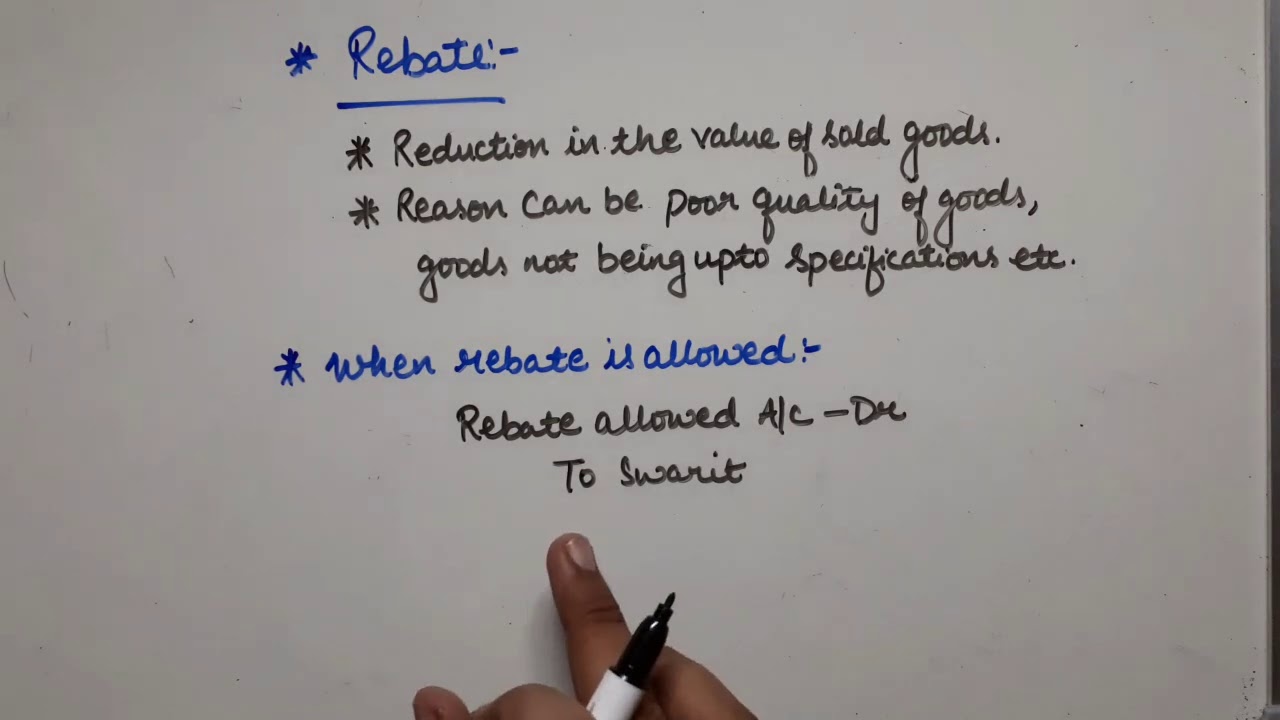 * Rebate:-
* Reduction in the value of sold goods.
* Reason can be poor quality of goods,
goods not being upto specifications etc.
* When rebate is allowed:-
Rebate allowed A/c - Dr
To Swarit